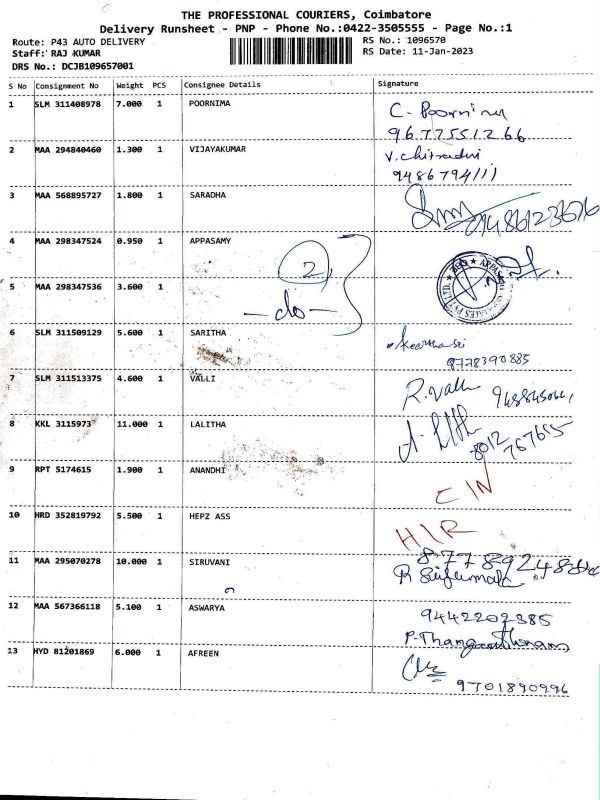 THE PROFESSIONAL COURIERS, Coimbatore
Delivery Runsheet - PNP - Phone No.:0422-3505555 - Page No.:1
Route: P43 AUTO DELIVERY
RS No.: 1096570
Staff: RAJ KUMAR
RS Date: 11-Jan-2023
DRS No.: DCJB109657001
S No Consignment No Weight PCS Consignee Details Signature
1 SLM 311408978 7.000 1 POORNIMA C. Poornima
9677551266
2 MAA 294840460 1.300 1 VIJAYAKUMAR V.chitradevi
9486794111
3 MAA 568895727 1.800 1 SARADHA
4 MAA 298347524 0.950 1 APPASAMY
2
5 MAA 298347536 3.600 1 -do-
6 SLM 311509129 5.600 1 SARITHA
8778390885
7 SLM 311513375 4.600 1 VALLI R.Valli
8 KKL 3115973 11.000 1 LALITHA
8012 767655
9 RPT 5174615 1.900 1 ANANDHI CIN
10 HRD 352819792 5.500 1 HEPZ ASS HIR
11 MAA 295070278 10.000 1 SIRUVANI
12 MAA 567366118 5.100 1 ASWARYA 9442202385
13 HYD 81201869 6.000 1 AFREEN
9701890996